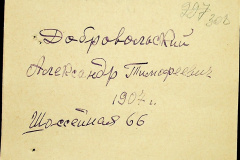 297
302
Добровольский
Александр Тимофеевич
1907 г.
Шоссейная 66